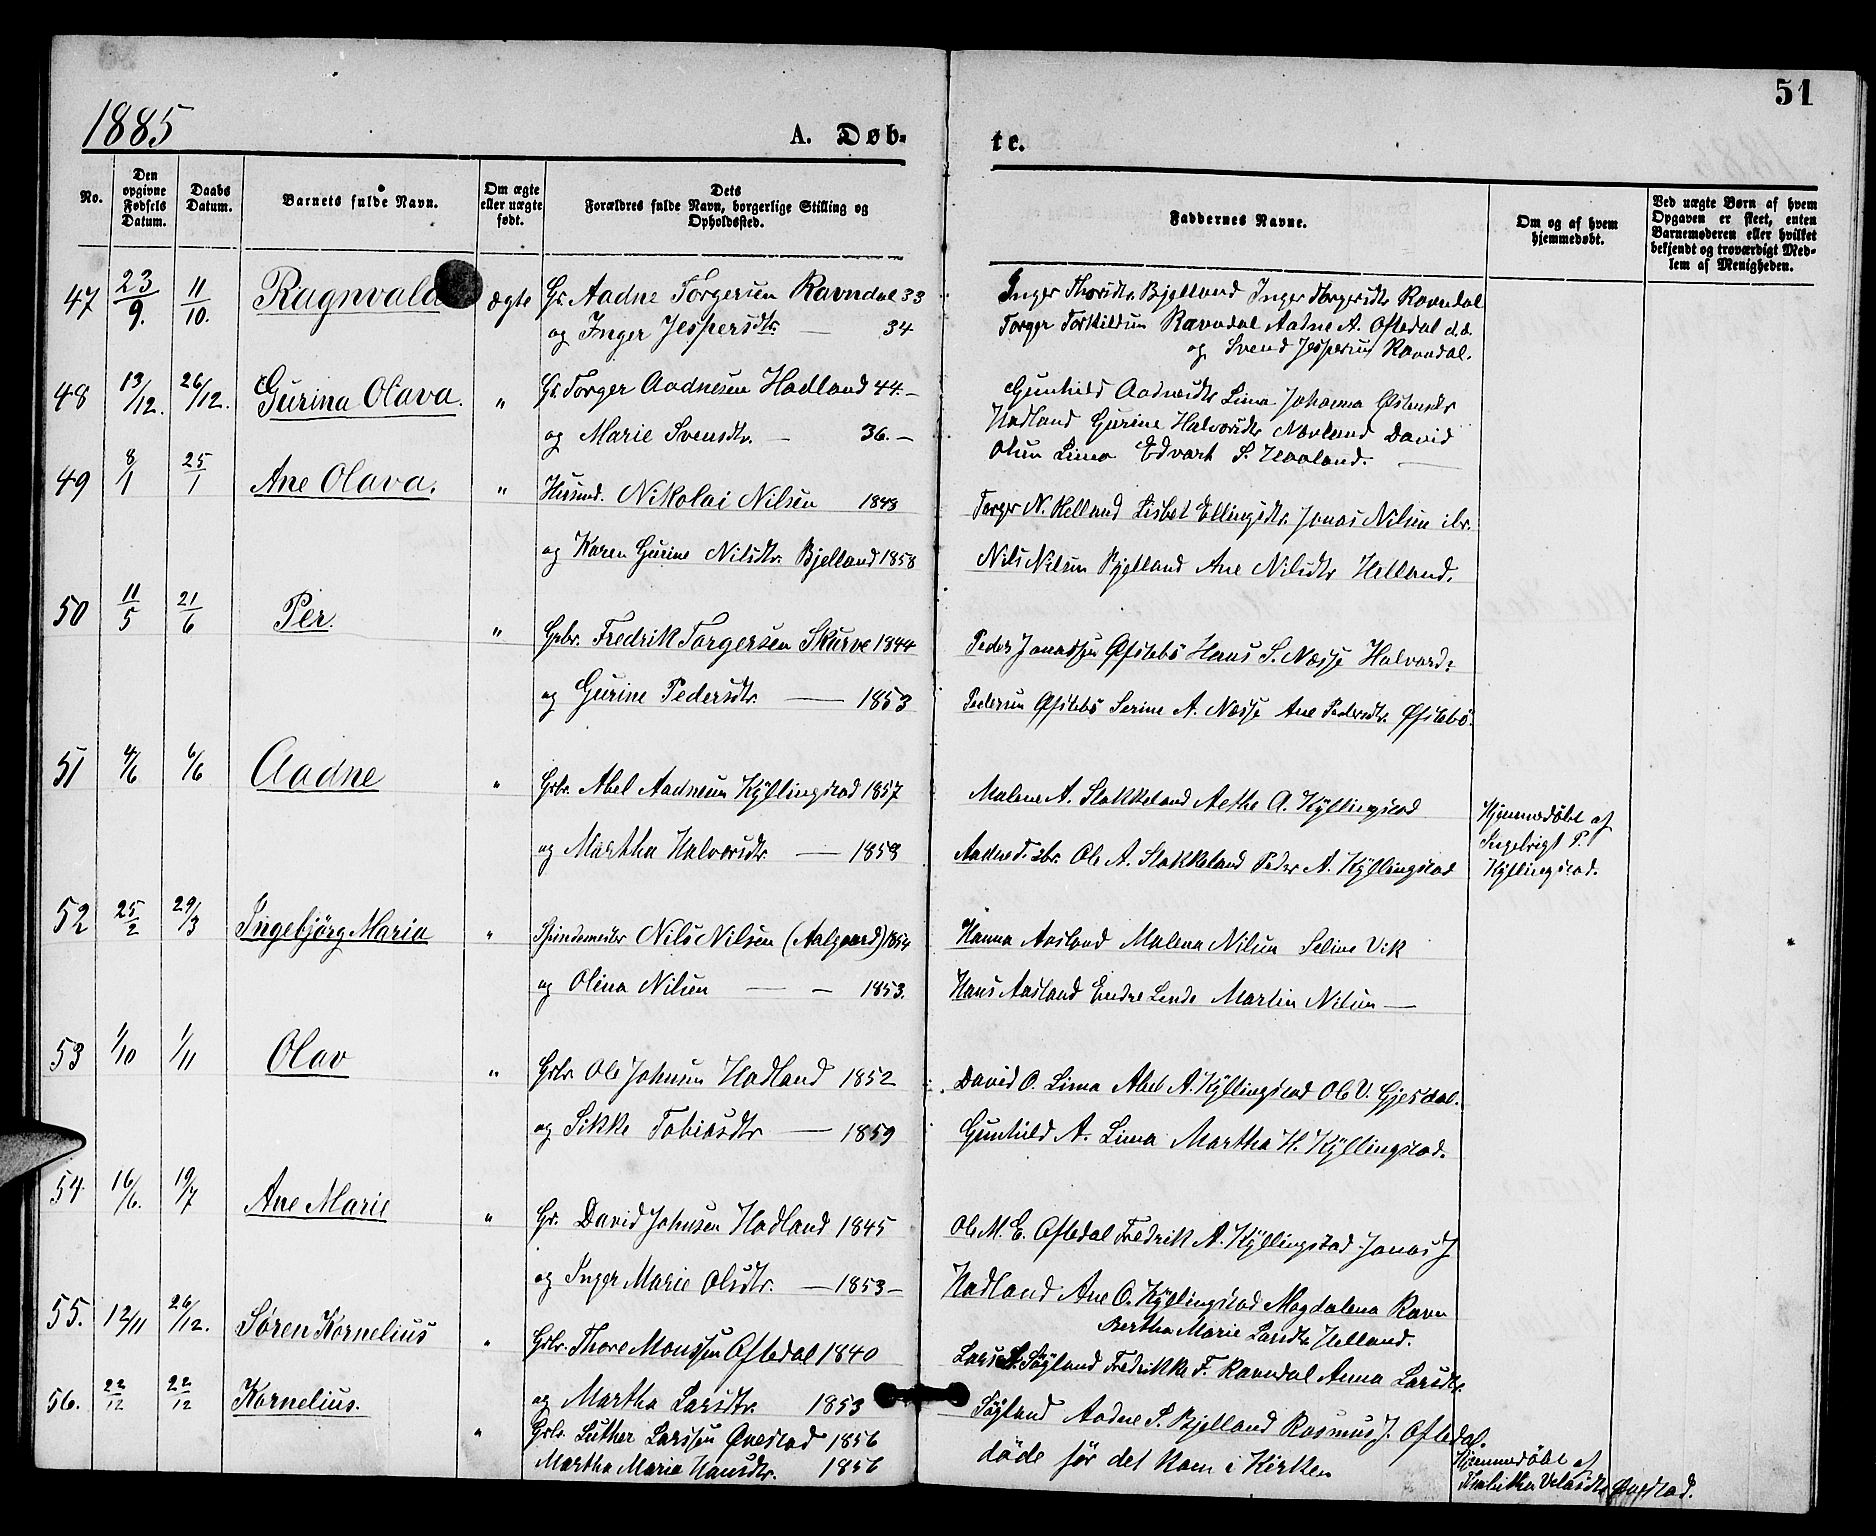 51
1885
A. Døb-
te.
No.
Den opgivne Fødsels Datum.
Daabs Datum.
Barnets fulde Navn.
Om ægte eller uægte født.
Dets Forældres fulde Navn, borgerlige Stilling og Opholdssted.
Faddernes Navne.
Om og af hvem hjemmedøbt.
Ved uægte Børn af hvem Opgaven er skeet, enten Barnemoderen eller hvilket bekjendt og troværdigt Medlem af Menigheden.
47 23/9. 11/10. Ragnvald ægte Gr. Aadne Torgersen Ravndal 33
og Inger Jespersdtr. — 34
Inger Thorsdtr Bjelland Inger Torgersdtr Ravndal
Torger Torkildsen Ravndal Aadne A. Oftedal
og Svend Jespersen Ravndal.
48 13/12. 26/12. Gurina Olava. " Gr. Torger Aadnesen Hadland 44.–
og Marie Svensdtr. — 36.–
Gunhild Aadnesdtr Lima Johanna Østensdtr
Hadland Gurine Halvorsdtr Norland David
Olsen Lima Edvart S. Haaland. —
49 8/1 25/1 Ane Olava. " Husmd. Nikolai Nilsen 1843
og Karen Gurine Nilsdtr. Bjelland 1858
Torger N. Helland Lisbet Ellingsdtr. Jonas Nilsen ibr.
Nils Nilsen Bjelland Ane Nilsdtr Helland.
50 11/5 21/6 Per. " Grbr. Fredrik Torgersen Skurve 1844
og Gurine Pedersdtr. — 1853
Peder Jonassen Øfstebö Hans S. Næsse Halvard
Pedersen Øfstebö Serine A. Næsse Ane Pedersdtr. Øfstebö.
51 4/6 6/6 Aadne " Grbr. Abel Aadnesen Kyllingstad 1857
og Martha Halvorsdtr. — 1858
Malene A. Stokkeland Aethe A. Kyllingstad
Aadne T. ibr. Ole A. Stokkeland Peder A. Kyllingstad
Hjemmedöbt af
Ingebrigt P.
Kyllingstad.
52 25/2 29/3 Ingebjörg Maria " Spindemester Nils Nilsen (Aalgaard) 1854
og Olina Nilsen — – 1853.
Hanna Aasland Malena Nilsen Seline Vik
Hans Aasland Endre Lende Martin Nilsen —
53 1/10 1/11 Olav " Grbr. Ole Johnsen Hadland 1852
og Sikke Tobiasdtr — 1859
David O. Lima Abel A. Kyllingstad Ole V. Gjesdal.
Gunhild A. Lima Martha H. Kyllingstad.
54 16/6. 19/7 Ane Marie " Gr. David Johnsen Hadland 1845
og Inger Marie Olsdtr. — 1853 –
Ole M. E. Oftedal Fredrik A. Kyllingstad Jonas J
Hadland Ane O. Kyllingstad Magdalena Ravn
Bertha Marie Larsdtr Helland.
55. 12/11 26/12. Søren Kornelius " Grbr. Thore Monssen Oftedal 1840
og Martha Larsdtr. 1853
Lars Söyland Fredrikke F. Ravndal Anna Larsdtr.
Söyland Aadne S. Bjelland Rasmus J. Oftedal.
56. 22/12 22/12 Kornelius. " Grbr. Luther Larssen Qvestad 1856
Martha Marie Hansdtr. 1856
döde för det kom i Kirken
Hjemmedöbt af
Velasdtr Qvestad.